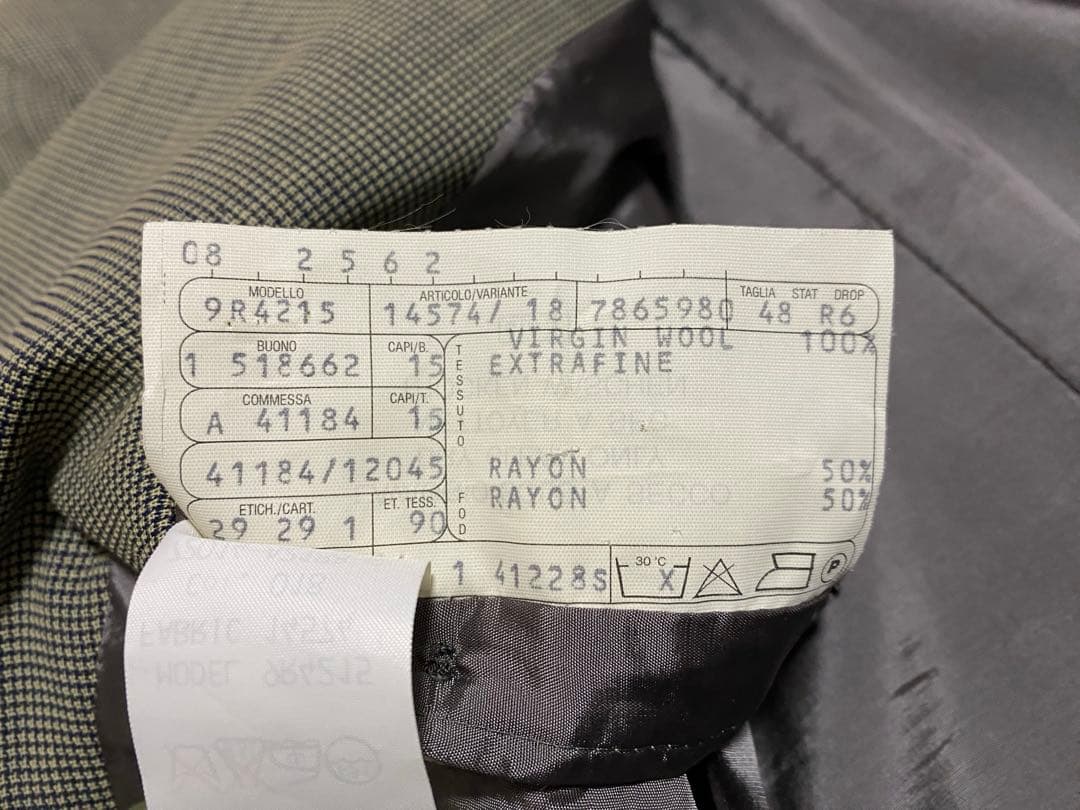 08 2 5 6 2
MODELLO ARTICOLO/VARIANTE TAGLIA STAT DROP
9R4215 14574/ 18 7865980 48 R6
VIRGIN WOOL 100%
BUONO CAPI/B. TESSUTO
1 518662 15 EXTRAFINE
COMMESSA CAPI/T.
A 41184 15
41184/12045 RAYON 50%
FOD RAYON 50%
ETICH./CART. ET. TESS.
29 29 1 90
1 41228S 30 °C X P
FABRIC 14574
MODEL 9R4215